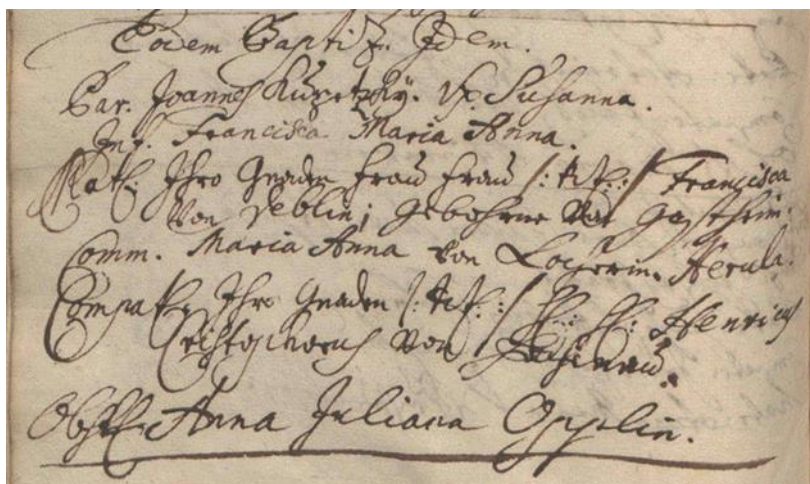 Eodem Baptiz. Idem.
Par. Joannes Kupetzky. Ux. Susanna.
Inf. Francisca Maria Anna.
Mat. Ihro Gnaden Frau Frau /: tit. :/ Francisca
Von Deblin; gebohrne Von
Comm. Maria Anna von
Compat. Ihro Gnaden /: tit. :/ H: H: Henricus
Cristophorus Von
Obst. Anna Juliana Opplin.